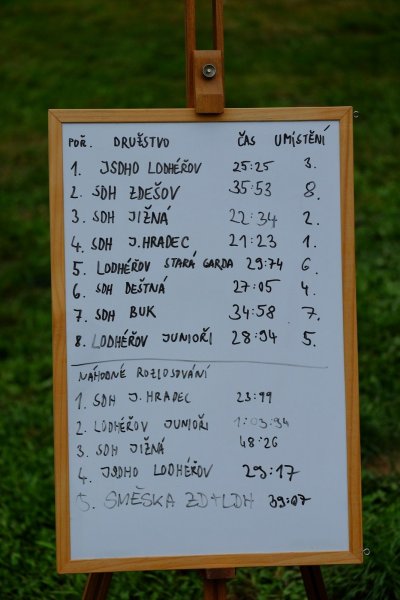 POŘ. DRUŽSTVO ČAS UMÍSTĚNÍ
1. JSDHO LODHÉŘOV 25:25 3.
2. SDH ZDEŠOV 35:53 8.
3. SDH JIŽNÁ 22:34 2.
4. SDH J.HRADEC 21:23 1.
5. LODHÉŘOV STARÁ GARDA 29:74 6.
6. SDH DEŠTNÁ 27:05 4.
7. SDH BUK 34:58 7.
8. LODHÉŘOV JUNIOŘI 28:94 5.
NÁHODNÉ ROZLOSOVÁNÍ
1. SDH J. HRADEC 23:99
2. LODHÉŘOV JUNIOŘI 1:03:94
3. SDH JIŽNÁ 48:26
4. JSDHO LODHÉŘOV 29:17
5. SMĚSKA ZD+LDH 39:07